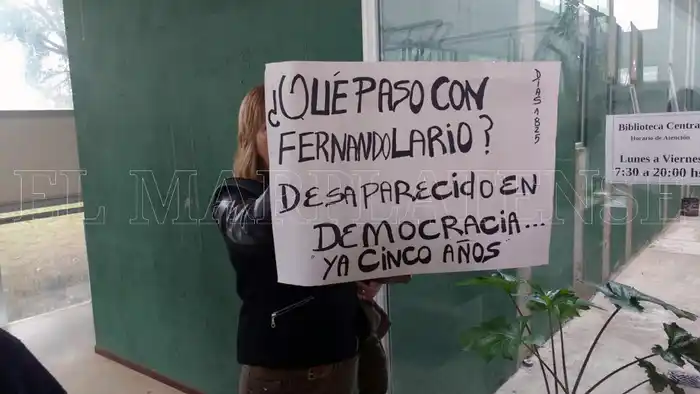 ¿QUÉ PASO CON
FERNANDO LARIO?
DESAPARECIDO EN
DEMOCRACIA...
"YA CINCO AÑOS"
DIAS 1825
Biblioteca Centra
Horario de Atención
Lunes a Vierne
7:30 a 20:00 hs
EL MARPLATENSE